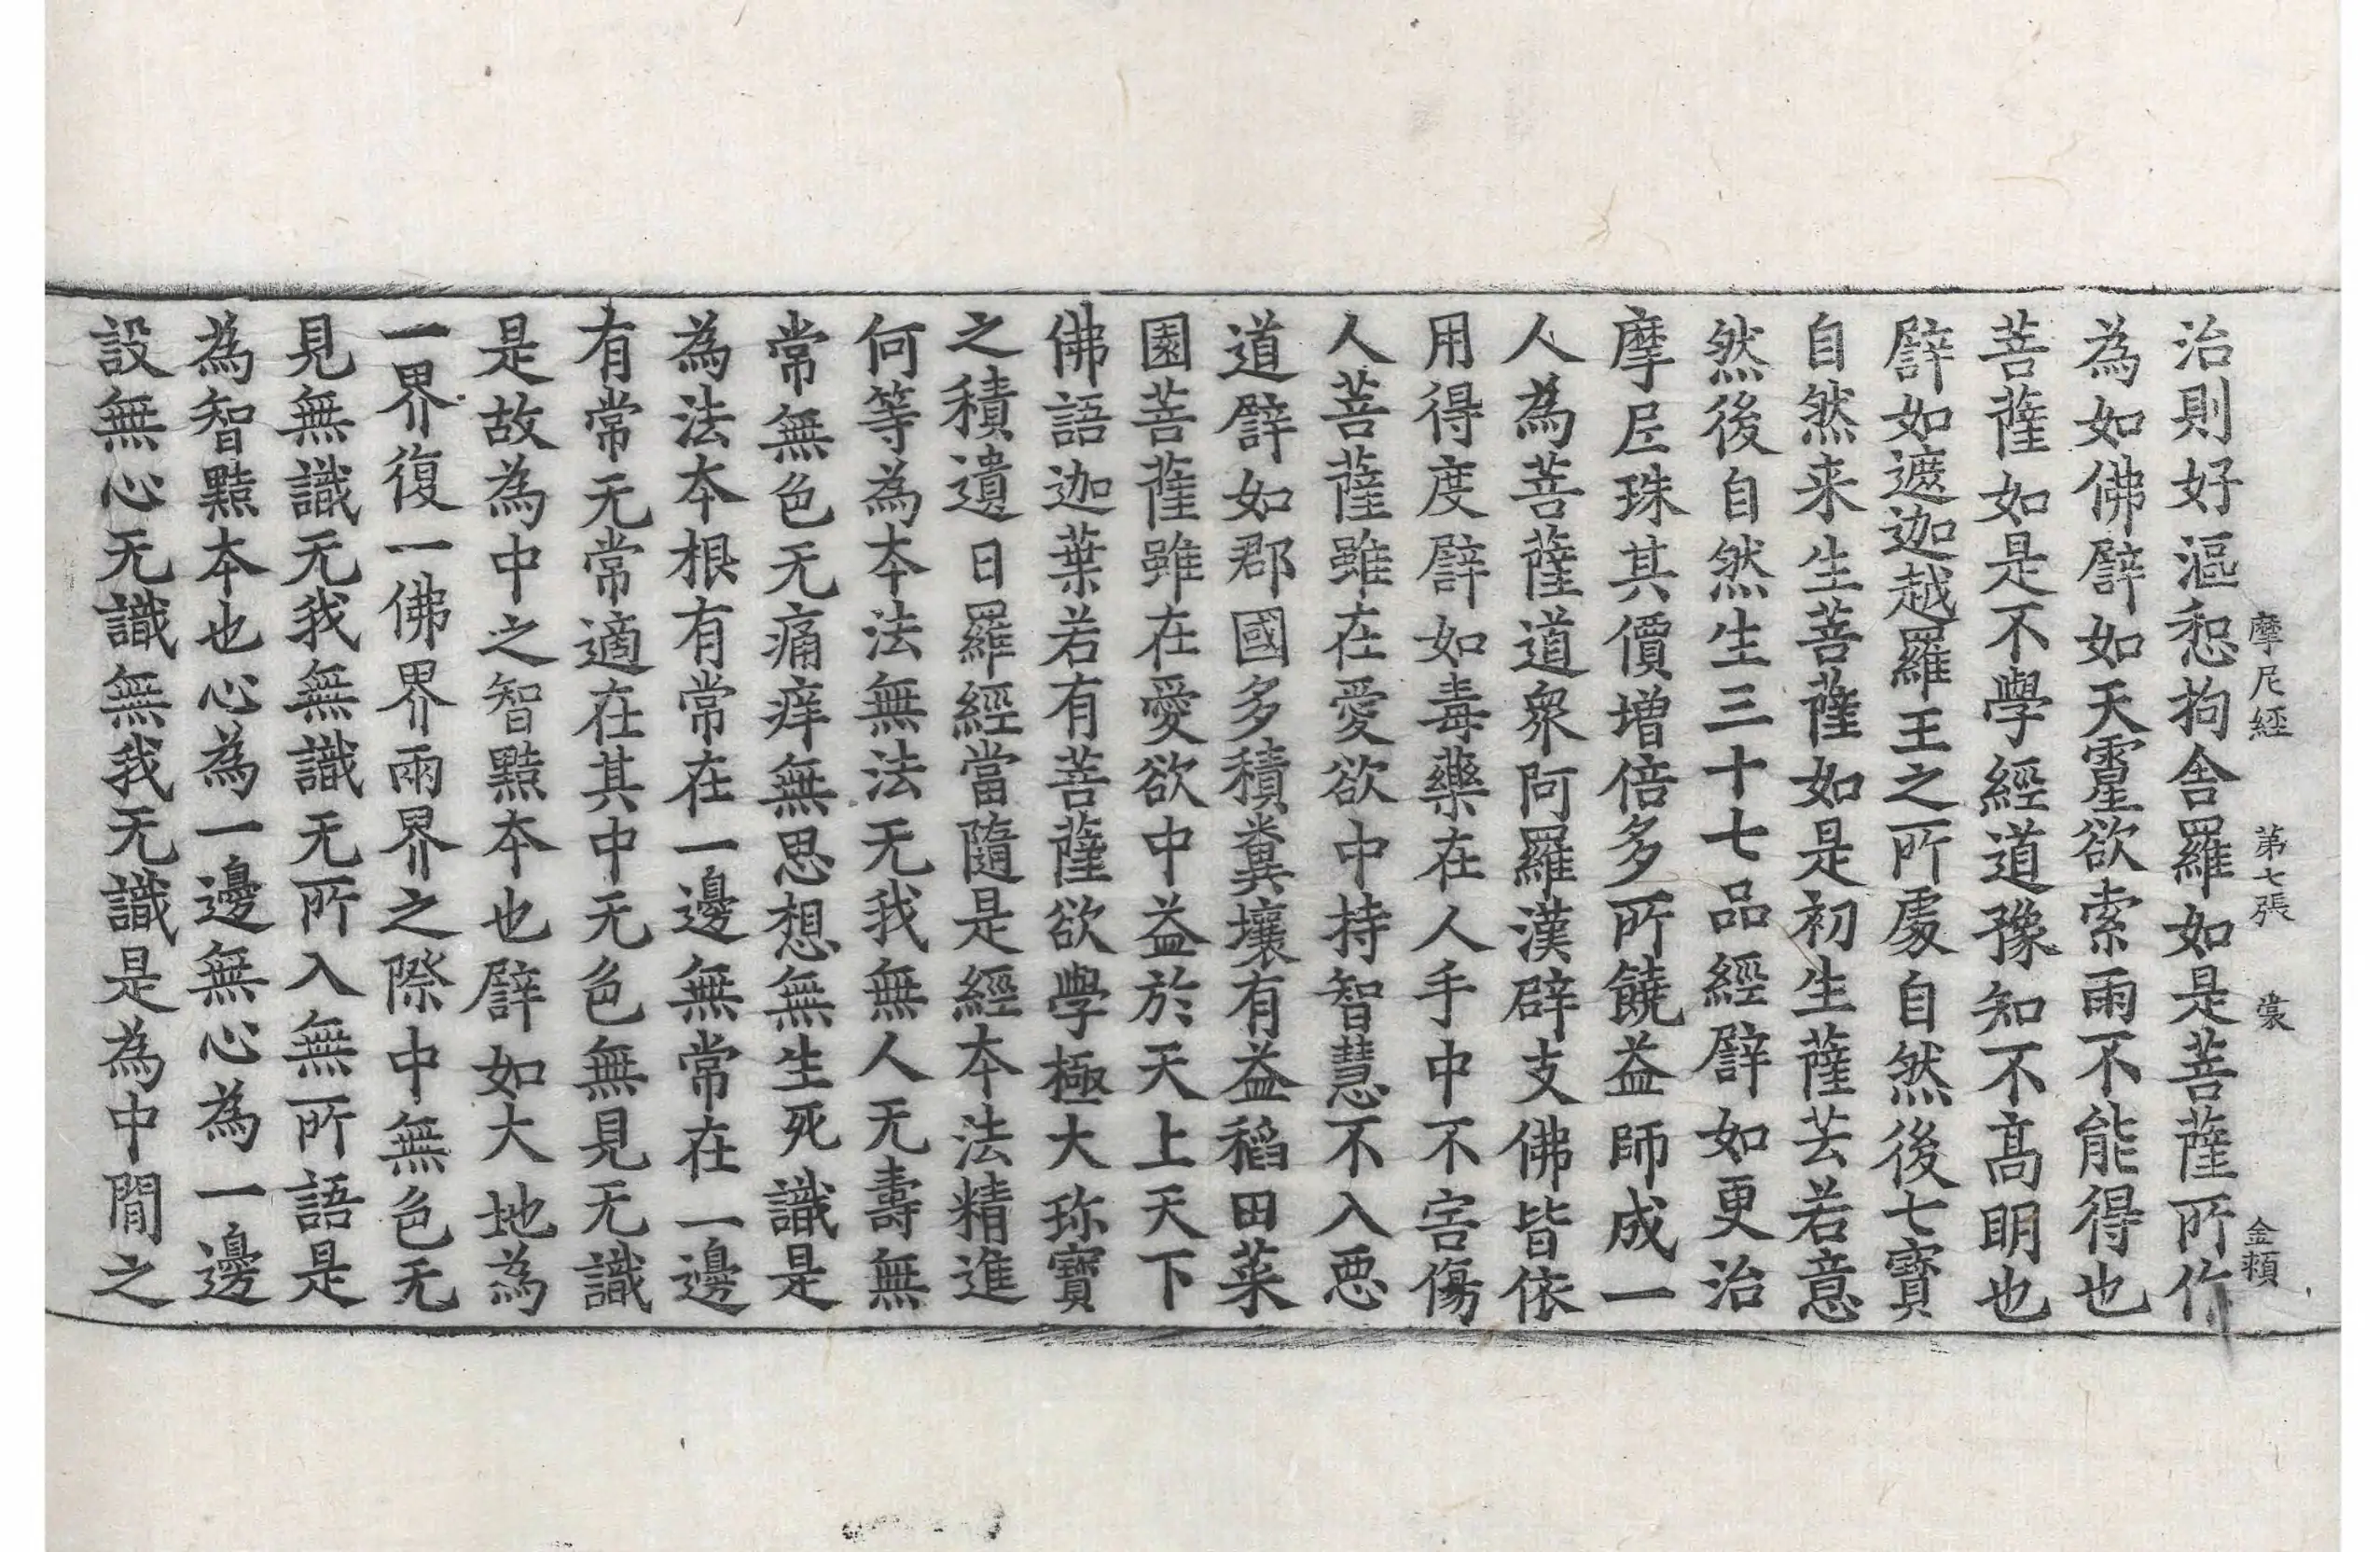 治則好漚惒拘舎羅如是菩薩所作
為如佛譬如天霍欲索雨不能得也
菩薩如是不學經道豫知不高明也
譬如遮迦越羅王之所處自然後七寶
自然来生菩薩如是初生薩芸若意
然後自然生三十七品經譬如更治
摩尼珠其價增倍多所饒益師成一
人為菩薩道衆阿羅漢辟支佛皆依
用得度譬如毒藥在人手中不害傷
人菩薩雖在愛欲中持智慧不入惡
道譬如郡國多積糞壤有益稻田菜
園菩薩雖在愛欲中益於天上天下
佛語迦葉若有菩薩欲學極大珎寶
之積遺日羅經當隨是經本法精進
何等為本法無法无我無人无壽無
常無色无痛痒無思想無生死識是
為法本根有常在一邊無常在一邊
有常无常適在其中无色無見无識
是故為中之智黠本也譬如大地為
一界復一佛界兩界之際中無色无
見無識无我無識无所入無所語是
為智黠本也心為一邊無心為一邊
設無心无識無我无識是為中間之
摩尼經 第七張 裳 金頪